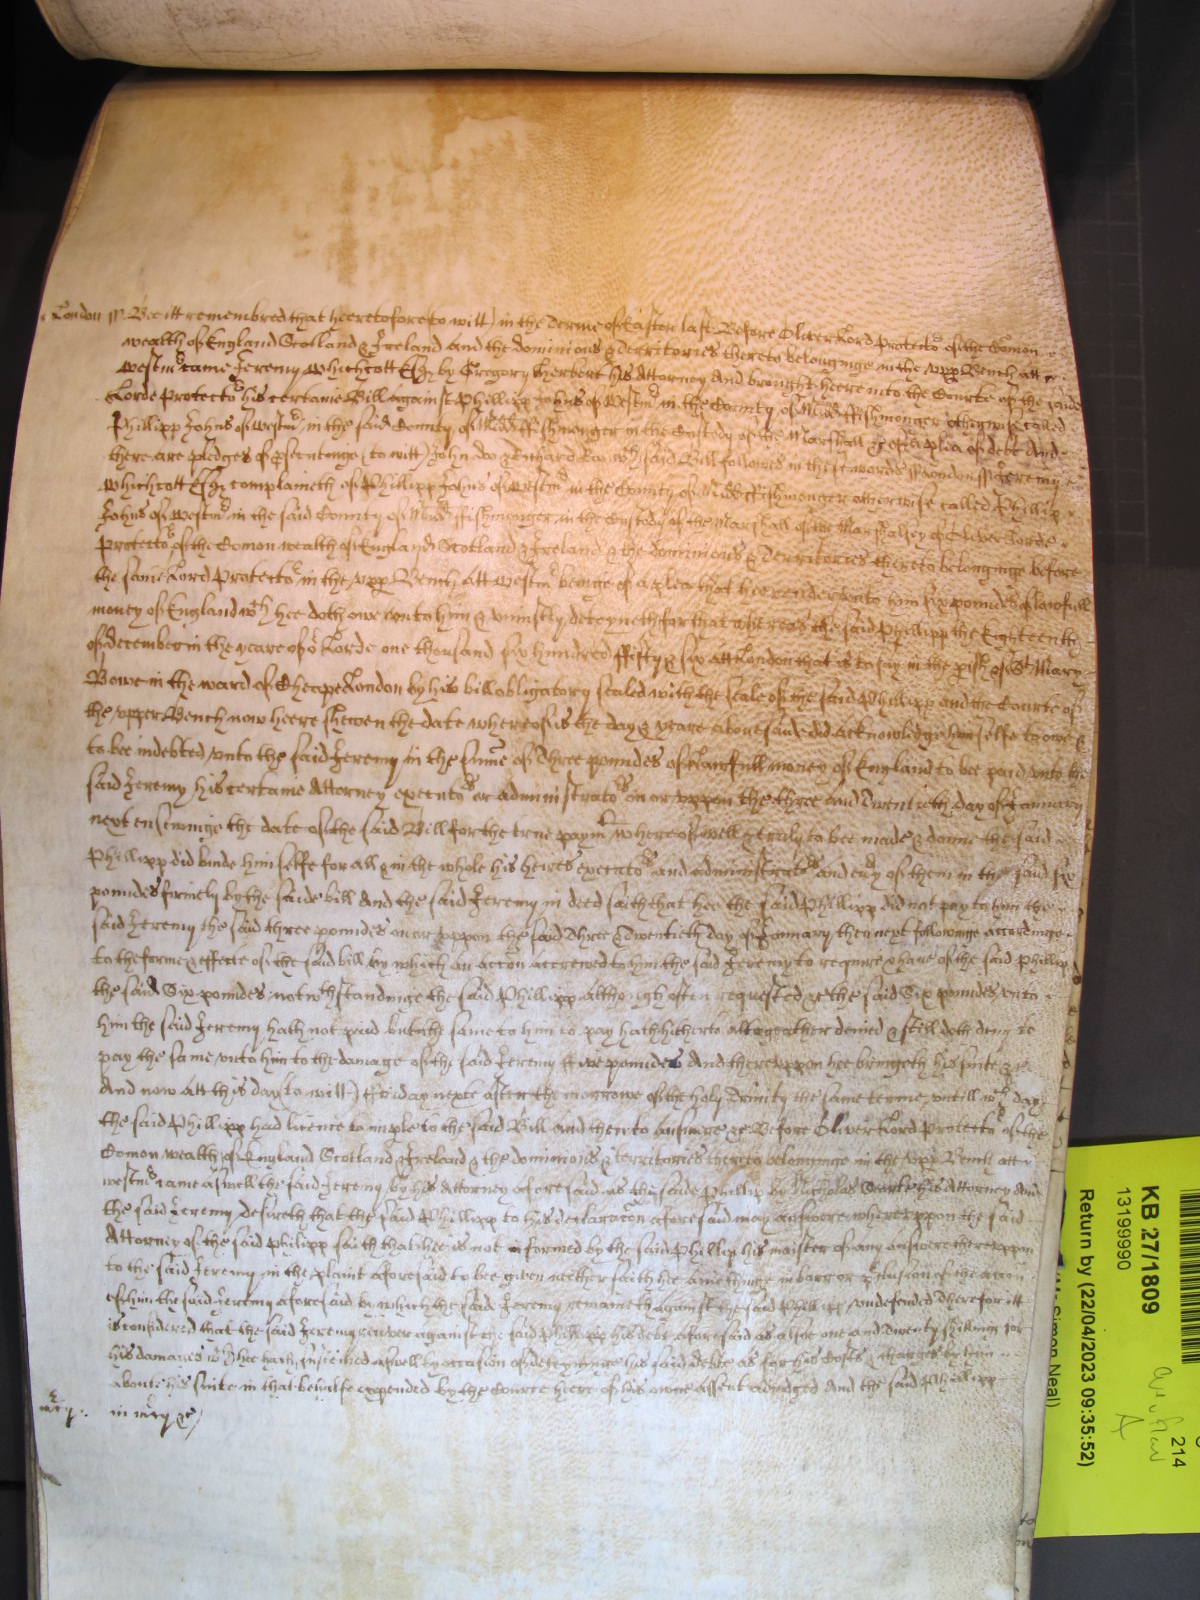 London ss Bee itt remembred that heeretofore (to witt) in the Terme of Easter last Before Oliver Lord Protector of the Comon
wealth of England Scotland & Ireland and the dominions & Territories thereto belonginge in the upp Bench att
Westmr came Jeremy Whichcott Esqr by Gregory Herbert his Attorney And brought heere into the Courte of the saide
Lorde Protector his certaine Bill against Phillipp Johns of Westmr in the County of Midd ffishmonger otherwise called
Phillipp Johns of Westmr in the said County of Midd ffishmonger in the Custody of the Marshall &c of a plea of debt And
there are pledges of psecutinge (to witt) John Doe & Richard Roe wch said Bill followes in these words ss London ss Jeremy
Whichcott Esqr complaineth of Phillipp Johns of Westmr in the County of Midd ffishmonger otherwise called Phillip
Johns of Westmr in the said County of Midd ffishmonger in the Custody of the Marshall of the Marshalsey of Oliver Lorde
Protector of the Comon wealth of England Scotland & Ireland & the dominions & Territories thereto belonginge before
the same Lord Protector in the upp Bench att Westmr beinge of a plea that hee render unto him six poundes of lawfull
money of England wch hee doth owe unto him & uniustly deteyneth for that whereas the said Phillipp the Eighteenth
of December in the yeare of or Lorde one thousand six hundred ffifty & six att London that is to say in the pish of St Mary
Bowe in the ward of Cheape London by his bill obligatory sealed with the seale of the said Phillipp and the Courte of
the upper Bench now heere shewen the date whereof is the day & yeare abovesaid did acknowledge himselfe to owe &
to bee indebted unto the said Jeremy in the sume of Three poundes of lawfull money of England to bee paid unto the
said Jeremy his certaine Attorney executors or administrators on or uppon the three and Twentieth day of January
next ensueinge the date of the said Bill for the true paymt whereof well & truly to bee made & donne the said
Phillipp did binde himselfe for all & in the whole his heires executors and administrators and evy of them in the said six
poundes firmely by the saide bill And the said Jeremy in deed saith that hee the said Phillipp did not pay to him the
said Jeremy the said three poundes on or uppon the said Three & Twentieth day of January then next followinge accordinge
to the forme & effecte of the said bill by which an accon accrewed to him the said Jeremy to require & have of the said Phillipp
the said Six poundes notwthstandinge the said Phillipp although often requested &c the said Six poundes unto
him the said Jeremy hath not paid but the same to him to pay hath hitherto altogeather denied & still doth deny to
pay the same unto him to the damage of the said Jeremy ffive poundes And thereuppon hee bringeth his suite &c
And now att this day (to witt) ffriday nexte after the morrowe of the Holy Trinity the same terme untill wch day
the said Phillipp had licence to imple to the said Bill And then to answere &c Before Oliver Lord Protector of the
Comon wealth of England Scotland & Ireland & the dominions & territories thereto belonginge in the upp Bench att
Westmr came aswell the said Jeremy by his Attorney aforesaid as the saide Phillip by Nicholas his Attorney And
the said Jeremy desireth that the said Phillipp to his declaracon aforesaid may answere whereuppon the said
Attorney of the said Philipp saith that hee is not informed by the said Phillip his maister of any answere thereuppon
to the said Jeremy in the plaint aforesaid to bee given neither saith hee anie thinge in barr or of the accon
of him the said Jeremy aforesaid by which the said Jeremy remaineth against the said Phillipp undefended Therefor itt
is considered that the said Jeremy recover against the said Phillipp his debt aforesaid as alsoe one and Twenty shillings for
his damages wch hee hath susteined aswell by occasion of deteyninge his said debte as for his Costs & charges by him
about his suite in that behalfe expended by the Courte heere of his owne assent adiudged And the said Phillipp
in mcy &c
mcy
KB 27/1809
13199990
214
Return by (22/04/2023 09:35:52)
Simon Neal)